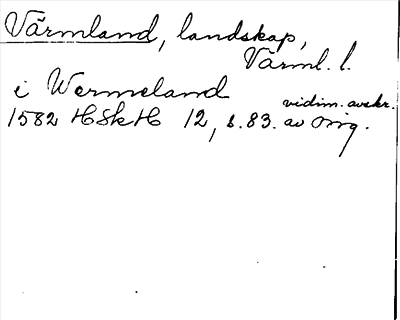 Värmland, landskap,
Värml. l.
i Wermeland
vidim. avskr.
1582 HSkH 12, s. 83. av orig.